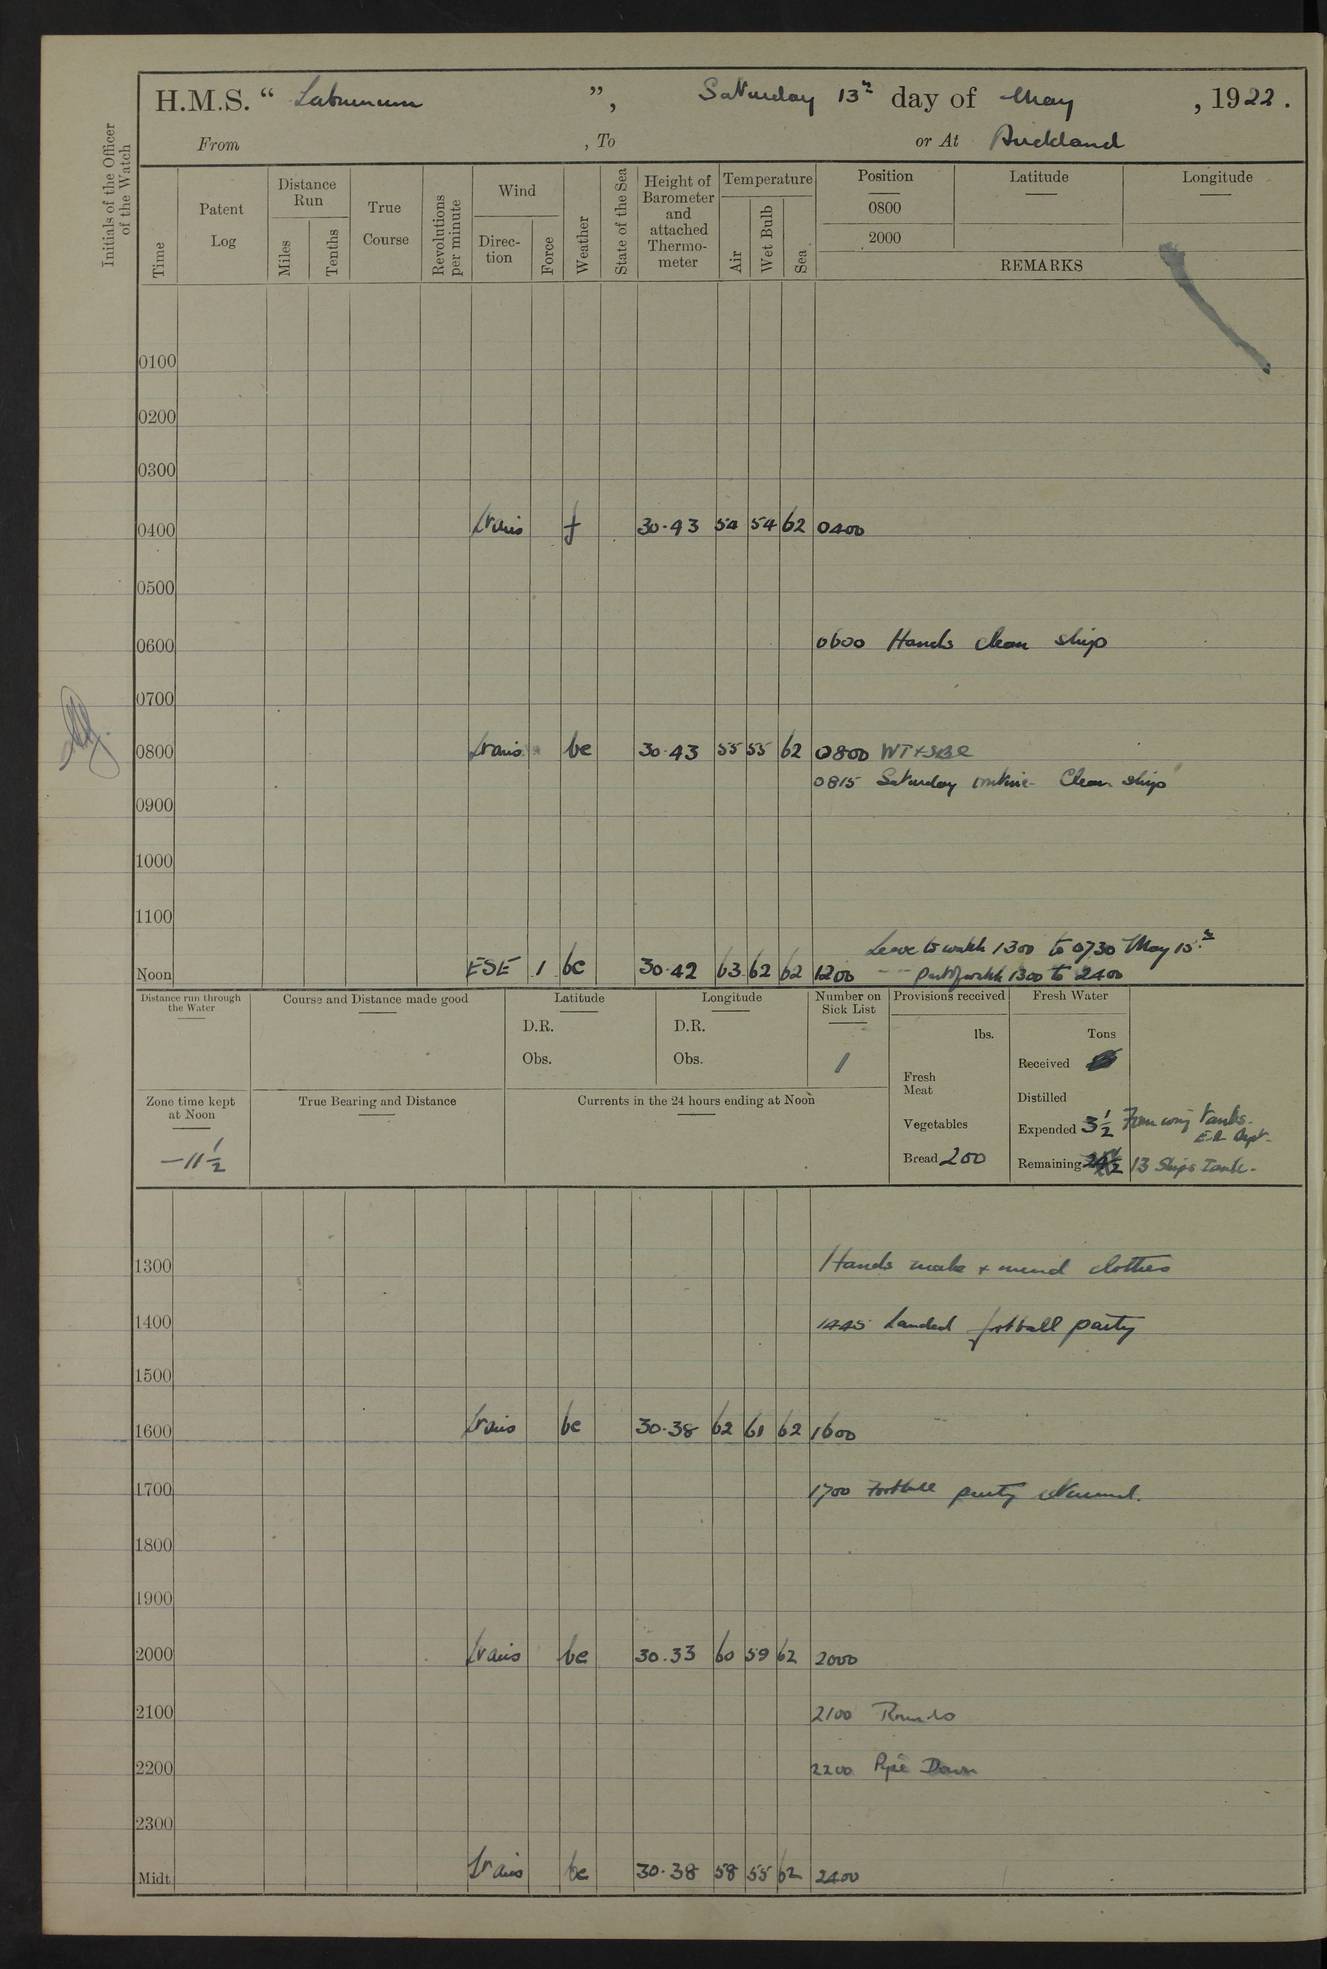 H.M.S. “ Laburnum ”, Saturday 13th day of May, 1922.
From , To or At Auckland
Initials of the Officer of the Watch
Time
Patent Log
Distance Run
Miles
Tenths
True Course
Revolutions per minute
Wind
Direc-tion
Force
Weather
State of the Sea
Height of Barometer and attached Thermo-meter
Temperature
Air
Wet Bulb
Sea
Position
0800
2000
Latitude
Longitude
REMARKS
0100
0200
0300
0400 f 30.43 54 54 62 0400
0500
0600 0600 Hands clean ship
0700
0800 bc 30.43 55 55 62 0800
0815 Saturday routine. Clean ship
0900
1000
1100
Leave to watch 1300 to 0730 May 15th
Noon ESE 1 bc 30.42 63 62 62 1200 - - part of watch 1300 to 2400
Distance run through the Water
Course and Distance made good
Latitude
D.R.
Obs.
Longitude
D.R.
Obs.
Number on Sick List
1
Provisions received
lbs.
Fresh Meat
Vegetables
Bread 200
Fresh Water
Tons
Received
Distilled
Expended 3½ From wing tanks.
E.R. Dept.
Remaining 13 Ships Tank.
Zone time kept at Noon
-11½
True Bearing and Distance
Currents in the 24 hours ending at Noon
1300 Hands make & mend clothes
1400 1445 Landed football party
1500
1600 bc 30.38 62 61 62 1600
1700 1700 Football party returned.
1800
1900
2000 bc 30.33 60 59 62 2000
2100 2100 Rounds
2200 2200 Pipe Down
2300
Midt. bc 30.38 58 55 62 2400